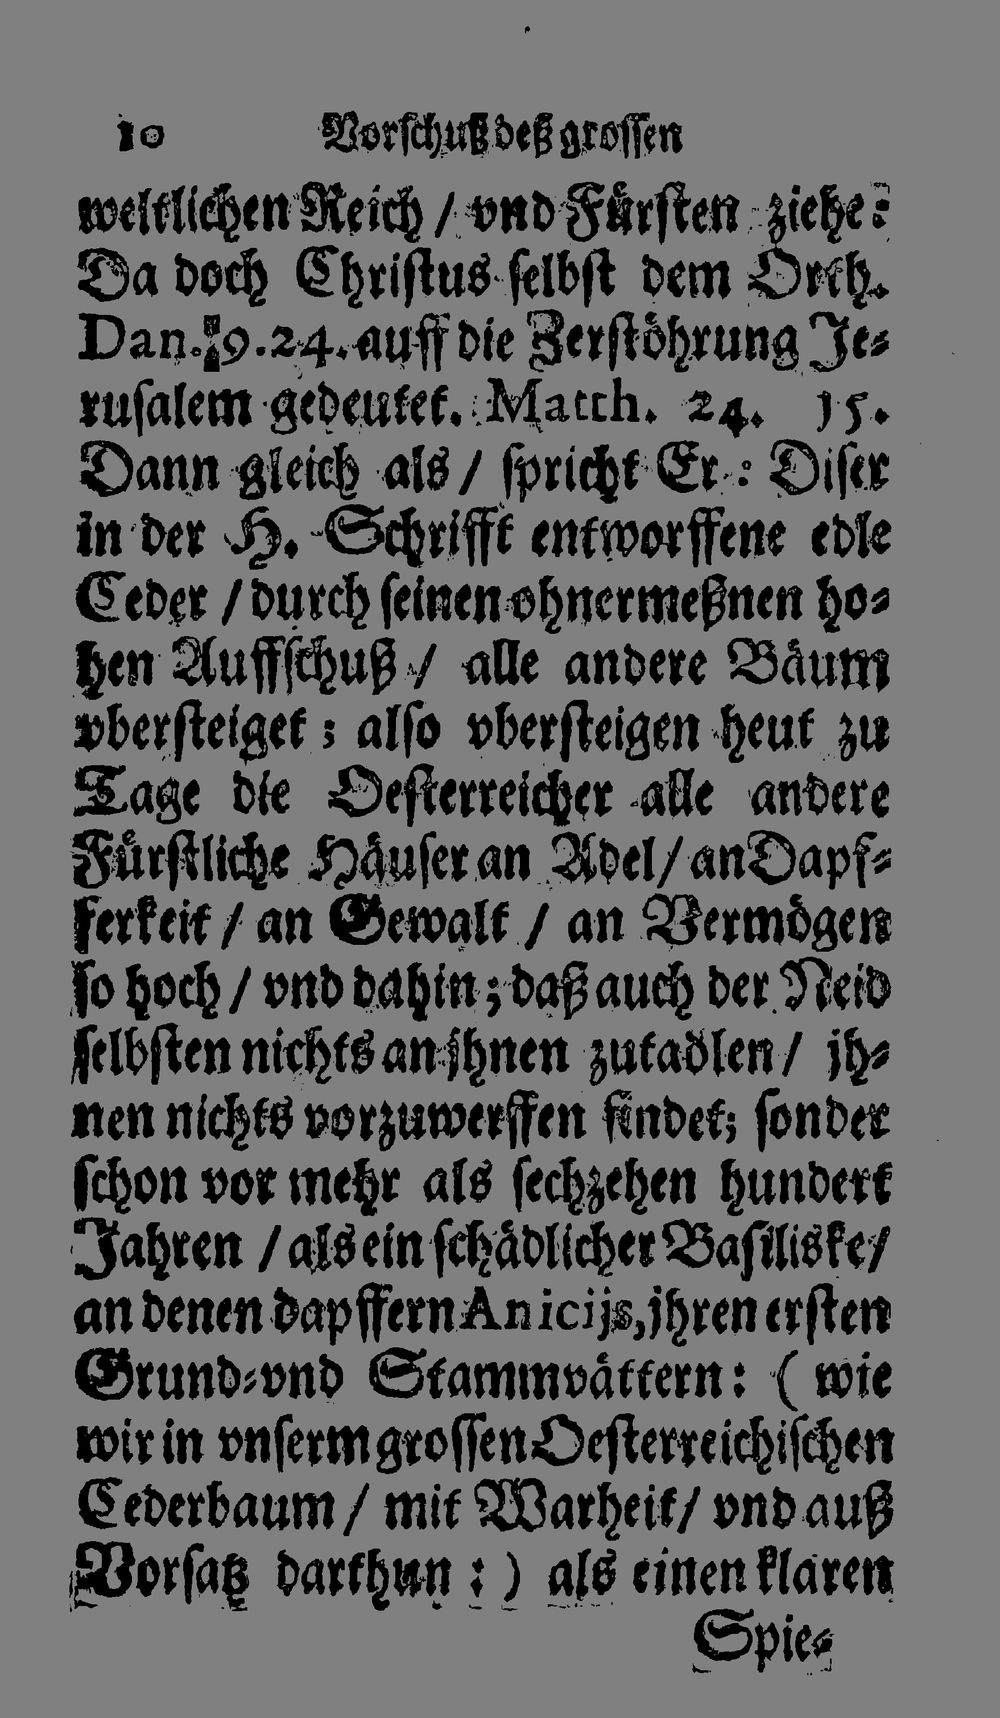 10 Vorschuß deß grossen
weltlichen Reich / vnd Fürsten ziehe:
Da doch Christus selbst dem Orth.
Dan. 9. 24. auff die Zerstöhrung Je-
rusalem gedeutet. Matth. 24. 15.
Dann gleich als / spricht Er: Diser
in der H. Schrifft entworffene edle
Ceder / durch seinen ohnermeßnen ho-
hen Auffschuß / alle andere Bäum
vbersteiget; also vbersteigen heut zu
Tage die Oesterreicher alle andere
Fürstliche Häuser an Adel / an Dapf-
ferkeit / an Gewalt / an Vermögen
so hoch / vnd dahin; daß auch der Neid
selbsten nichts an jhnen zutadlen / jh-
nen nichts vorzuwerffen findet; sonder
schon vor mehr als sechzehen hundert
Jahren / als ein schädlicher Basiliske /
an denen dapffern Anicijs, jhren ersten
Grund- vnd Stammvättern: ( wie
wir in vnserm grossen Oesterreichischen
Cederbaum / mit Warheit / vnd auß
Vorsatz darthun: ) als einen klaren
Spie-